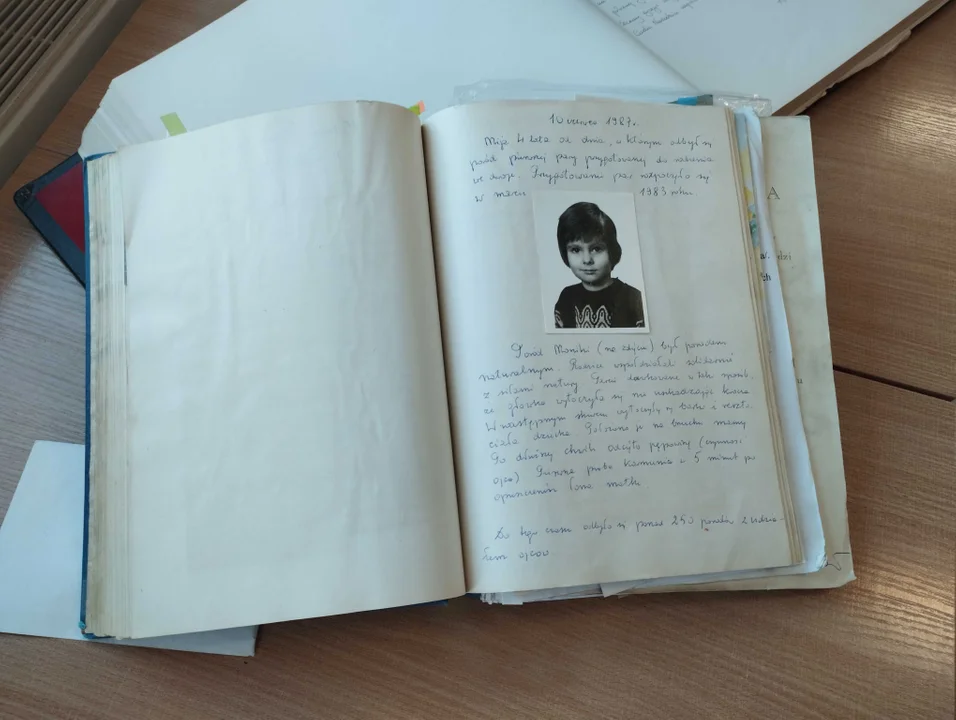 10 czerwca 1987r.
Mija 4 lata od dnia, w którym odbył się
poród pierwszej pary przygotowanej do rodzenia
we dwoje. Przygotowania par rozpoczęto się
w marcu 1983 roku.
Poród Moniki (na zdjęciu) był porodem
naturalnym. Rodzice współdziałali solidarnie
z siłami natury. Tempo w ten sposób,
że główka wytoczyła się nie uszkadzając krocza
W następnym skurczu wytoczyły się barki i reszta
ciała dziecka. Położono je na brzuchu mamy
Po dłuższej chwili odcięto pępowinę (czynność
ojca) Pierwsza próba karmienia w 5 minut po
opuszczeniu łona matki
Do tego czasu odbyło się ponad 250 porodów z udzia-
łem ojców
A